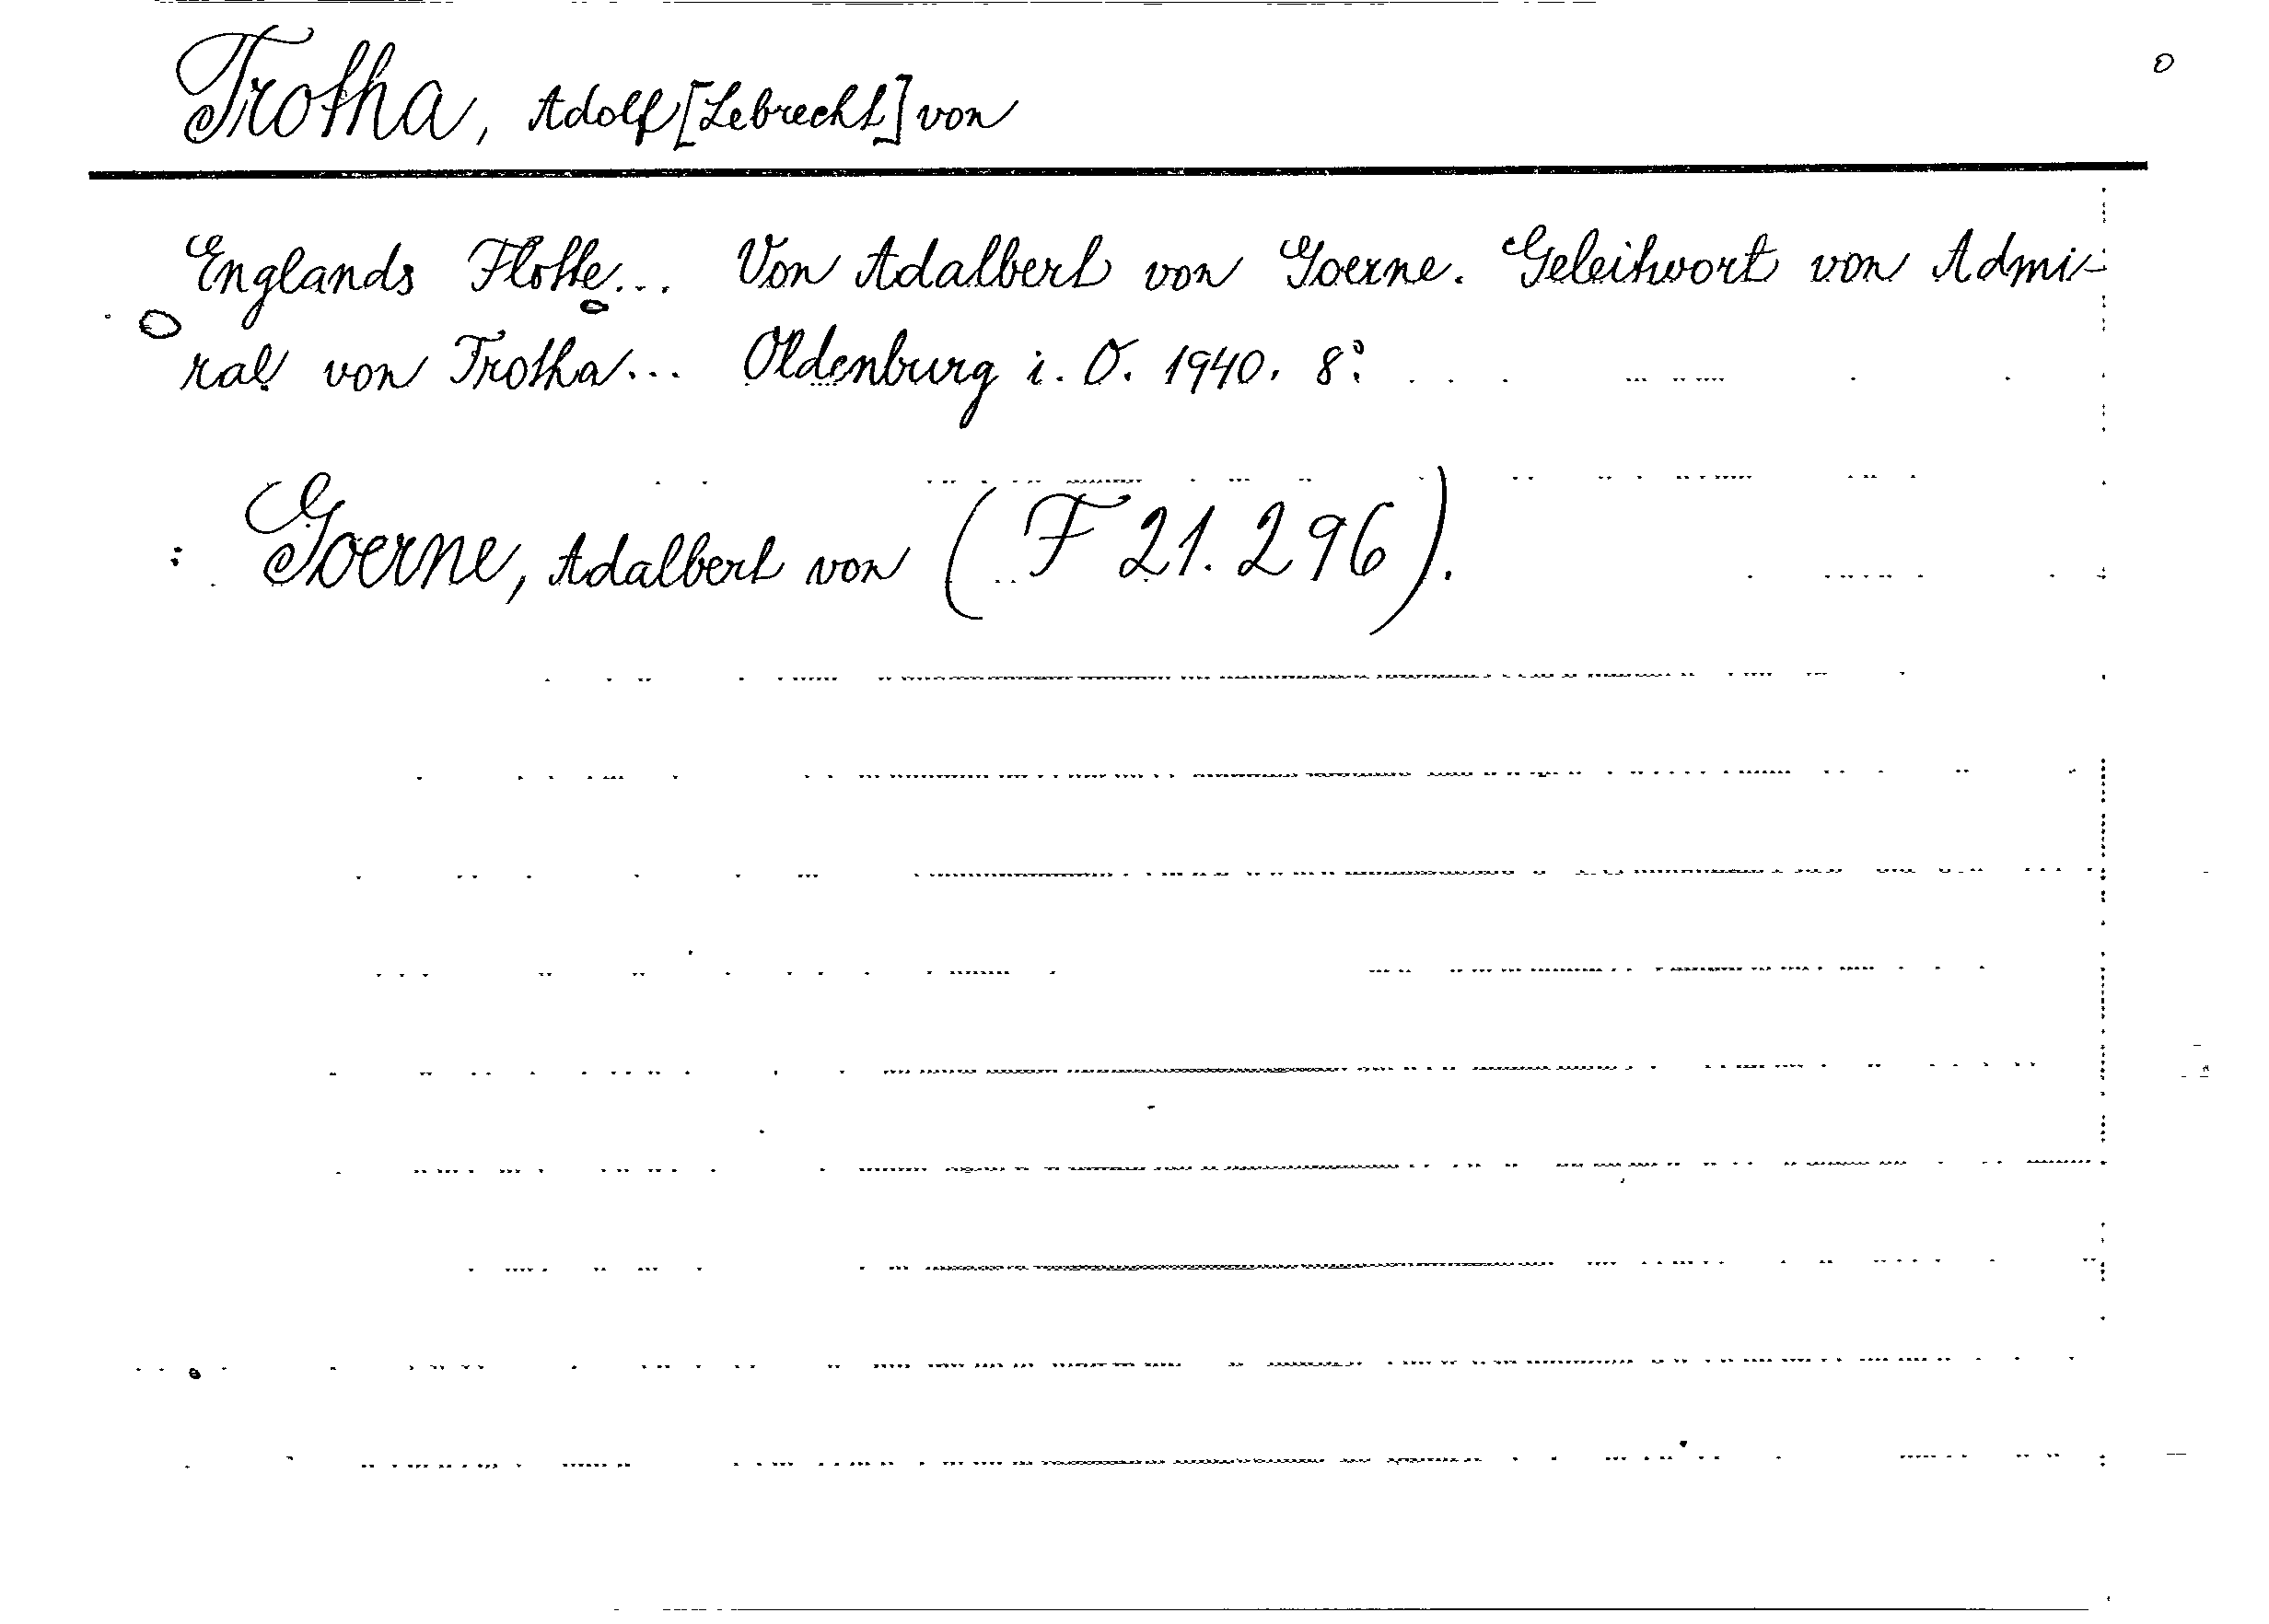 Trotha, Adolf [Lebrecht] von
Englands Flotte... Von Adalbert von Goerne. Geleitwort von Admi-
ral von Trotha... Oldenburg i. O. 1940. 8°.
Goerne, Adalbert von (F 21.296).